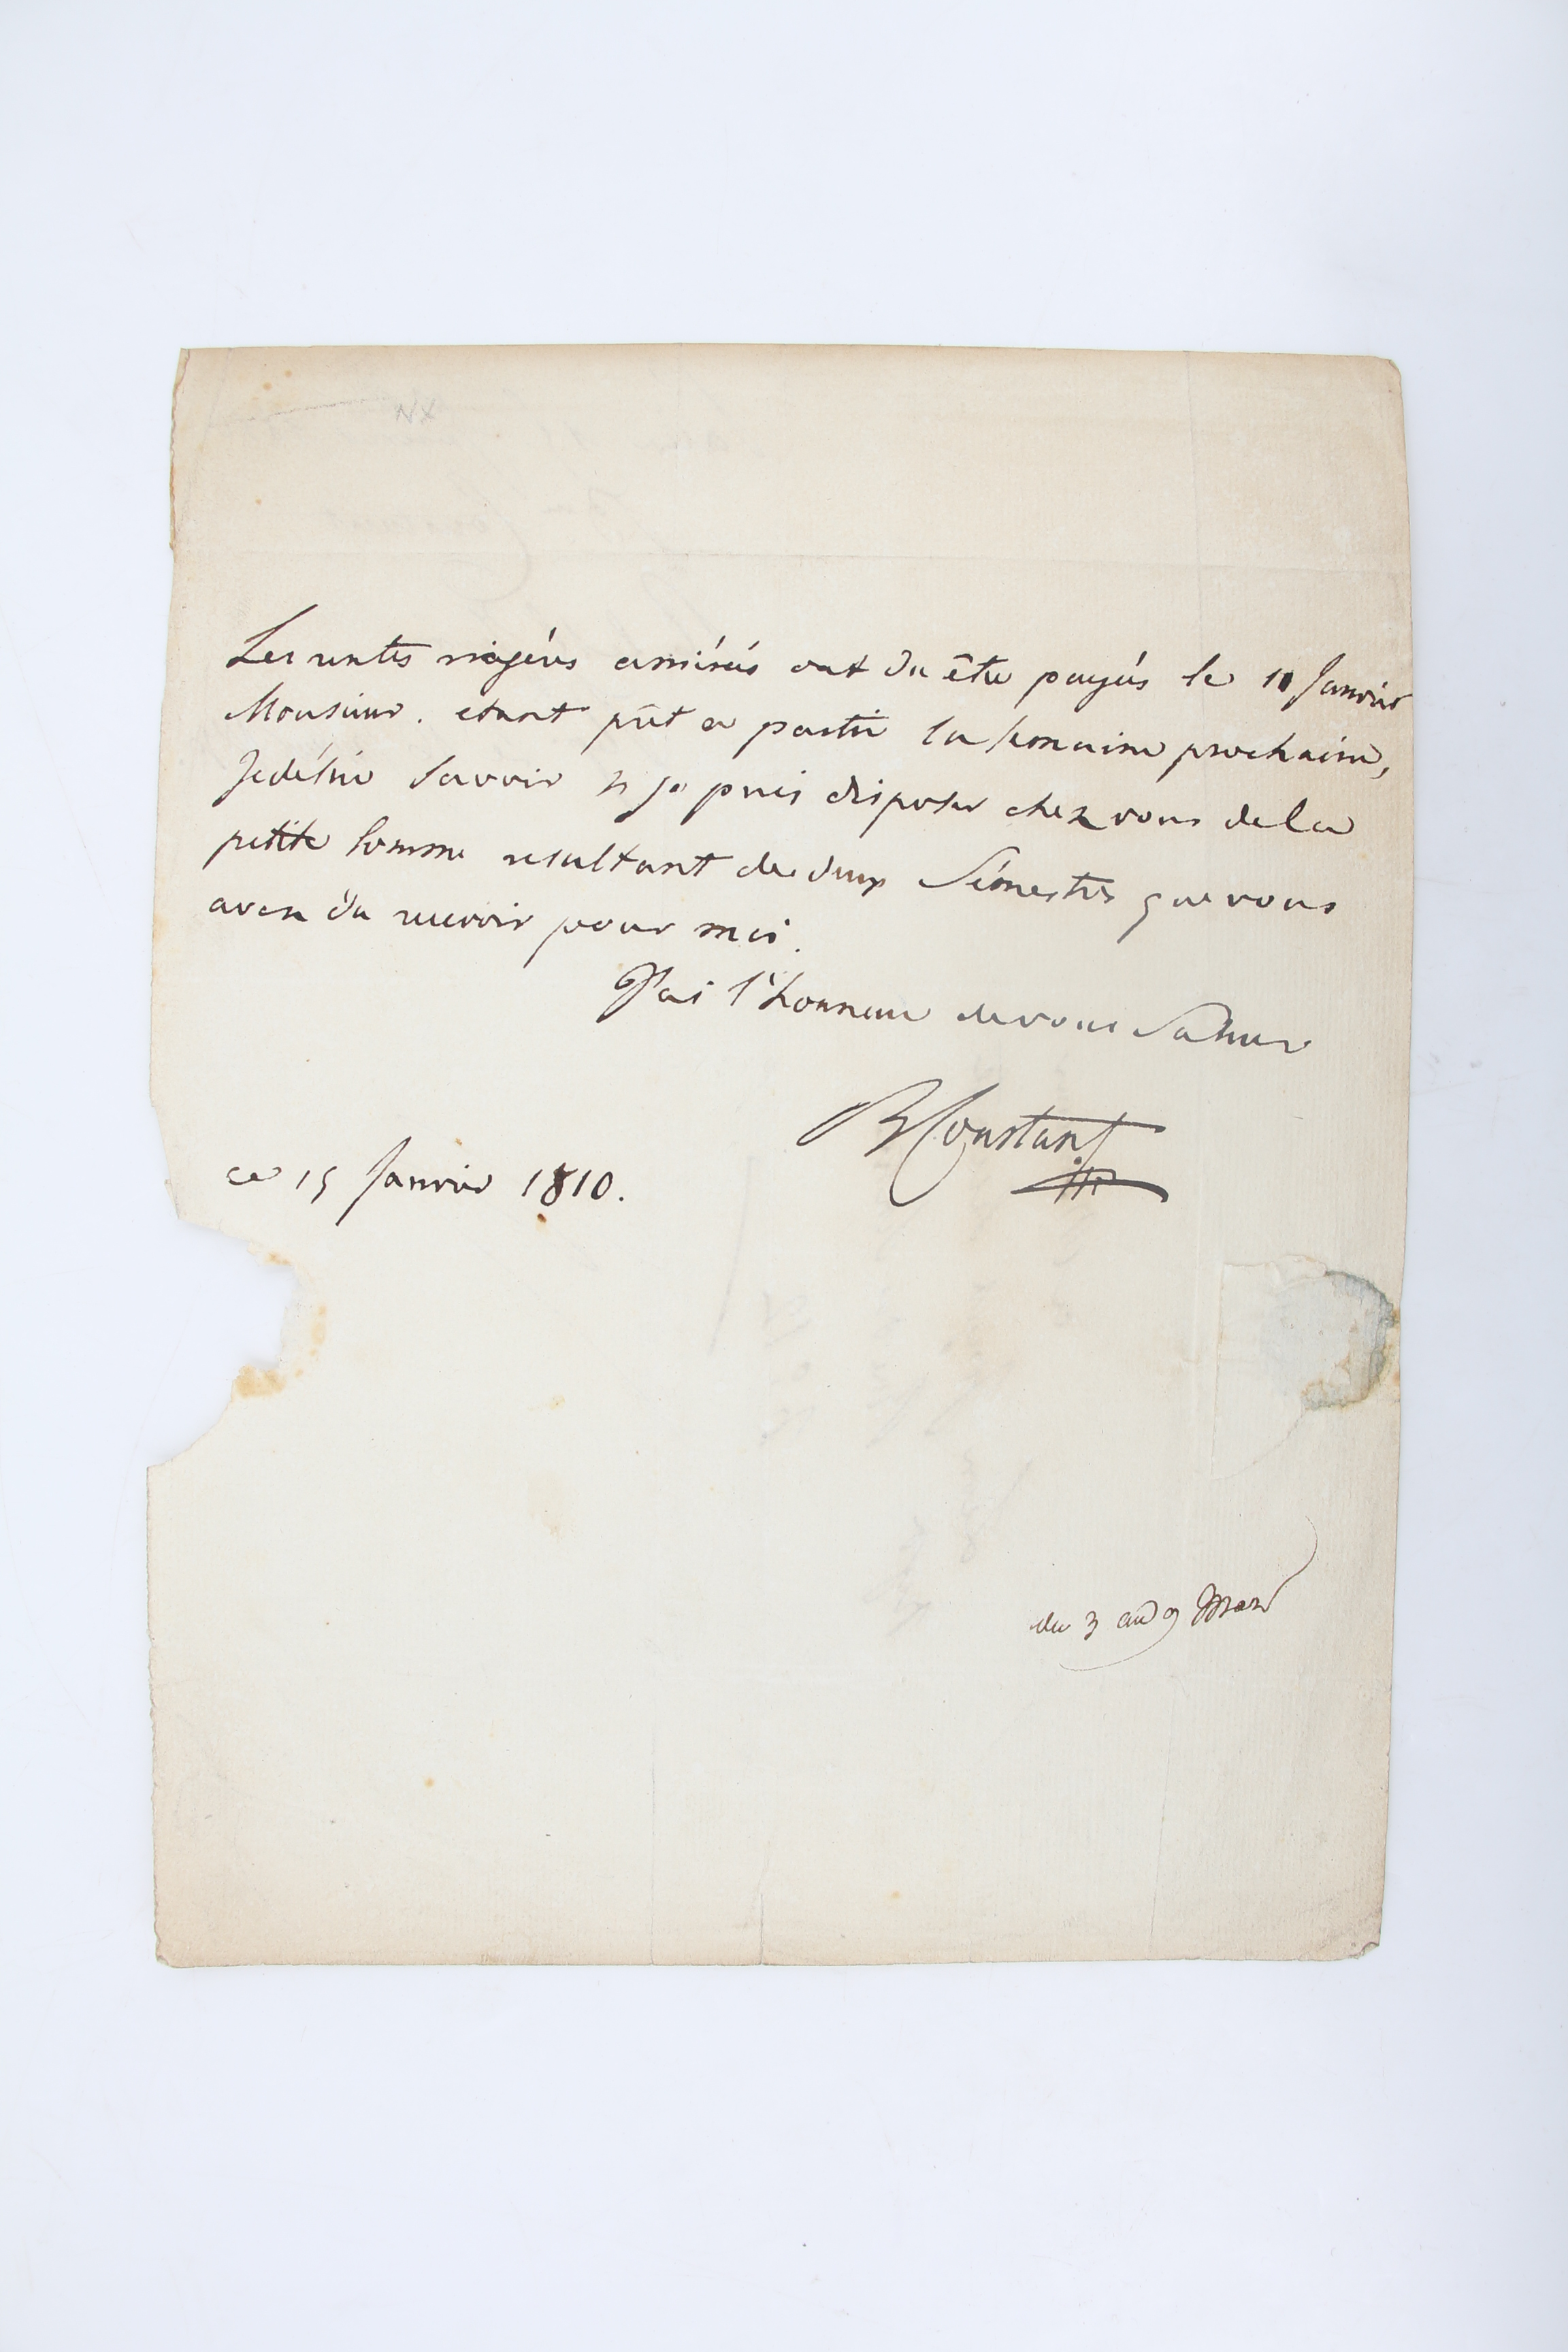 Les rentes viagères arriérées ont du être payées le 10 Janvier
Monsieur. etant prêt a partir la semaine prochaine,
je désire savoir si je puis disposer chez vous de la
petite somme resultant de deux Sémestres que vous
avez du recevoir pour moi.
J'ai l'honneur de vous saluer
B Constant
ce 15 Janvier 1810.
du 3 au 9 Mars